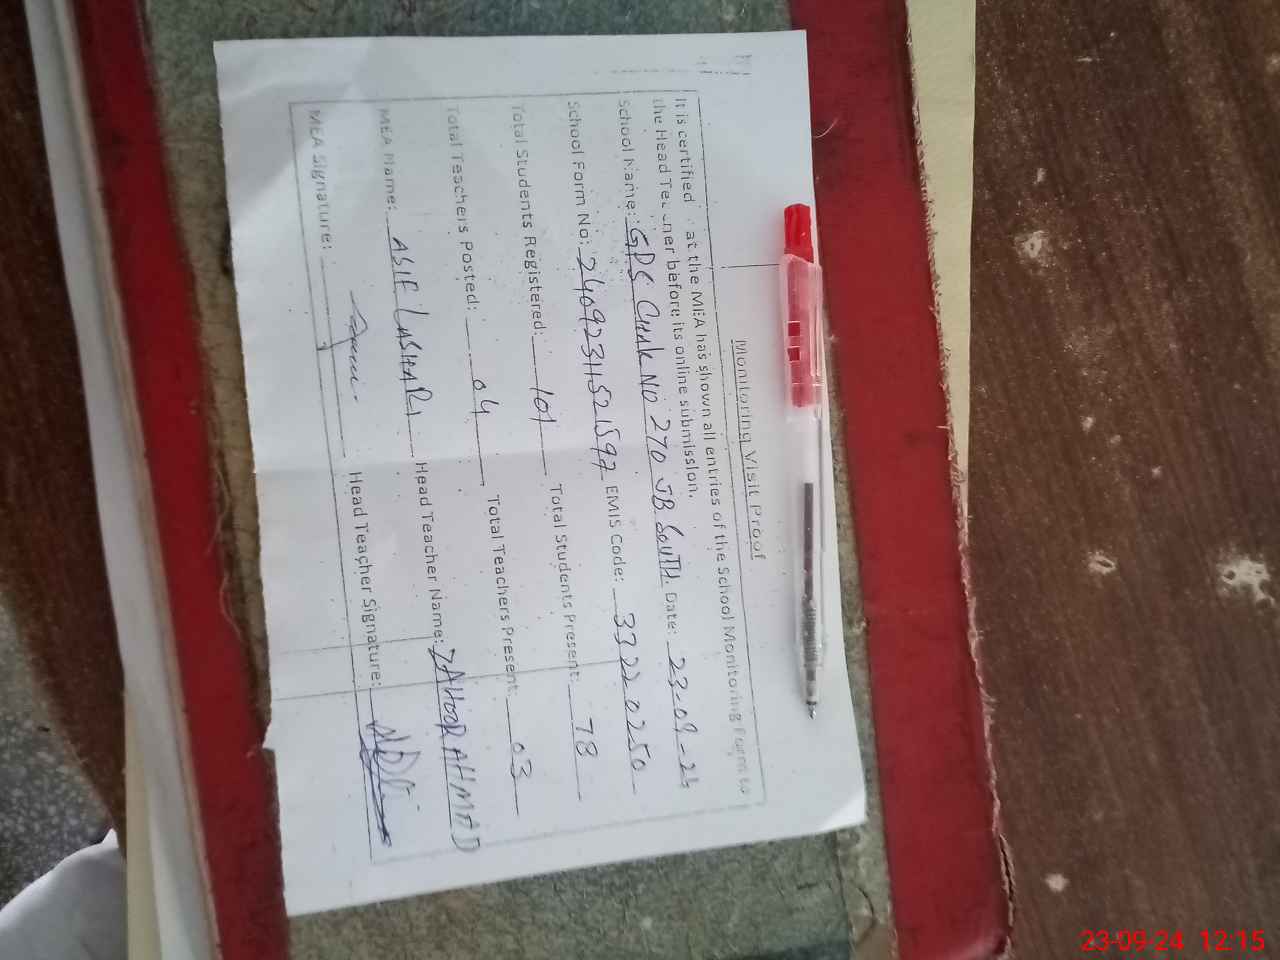 Monitoring Visit Proof
It is certified at the MEA has shown all entries of the School Monitoring Form to
the Head Teacher before its online submission.
School Name: GPS Chak No 270 JB South. Date: 23-09-24
School Form No: 2409231152 1597 EMIS Code: 33220250
Total Students Registered: 101 Total Students Present: 78
Total Teachers Posted: 04 Total Teachers Present: 03
MEA Name: ASIF LASHARI Head Teacher Name: ZAHOOR AHMAD
MEA Signature: Head Teacher Signature:
23-09-24 12:15